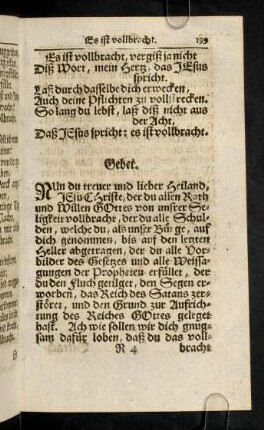 Es ist vollbracht. 199
Es ist vollbracht, vergiß ja nicht
Diß Wort, mein Hertz, das JEsus
spricht.
Laß durch dasselbe dich erwecken,
Auch deine Pflichten zu vollstrecken.
So lang du lebst, laß diß nicht aus
der Acht,
Daß JEsus spricht: es ist vollbracht.
Gebet.
NUn du treuer und lieber Heiland,
JEsu CHriste, der du allen Rath
und Willen GOttes von unsrer Se-
ligkeit vollbracht, der du alle Schul-
den, welche du, als unser Bürge, auf
dich genommen, bis auf den letzten
Heller abgetragen, der du alle Vor-
bilder des Gesetzes und alle Weissa-
gungen der Propheten erfüllet, der
du den Fluch getilget, den Segen er-
worben, das Reich des Satans zer-
störet, und den Grund zur Aufrich-
tung des Reiches GOttes geleget
hast. Ach wie sollen wir dich gnug-
sam dafür loben, daß du das voll-
N 4 bracht